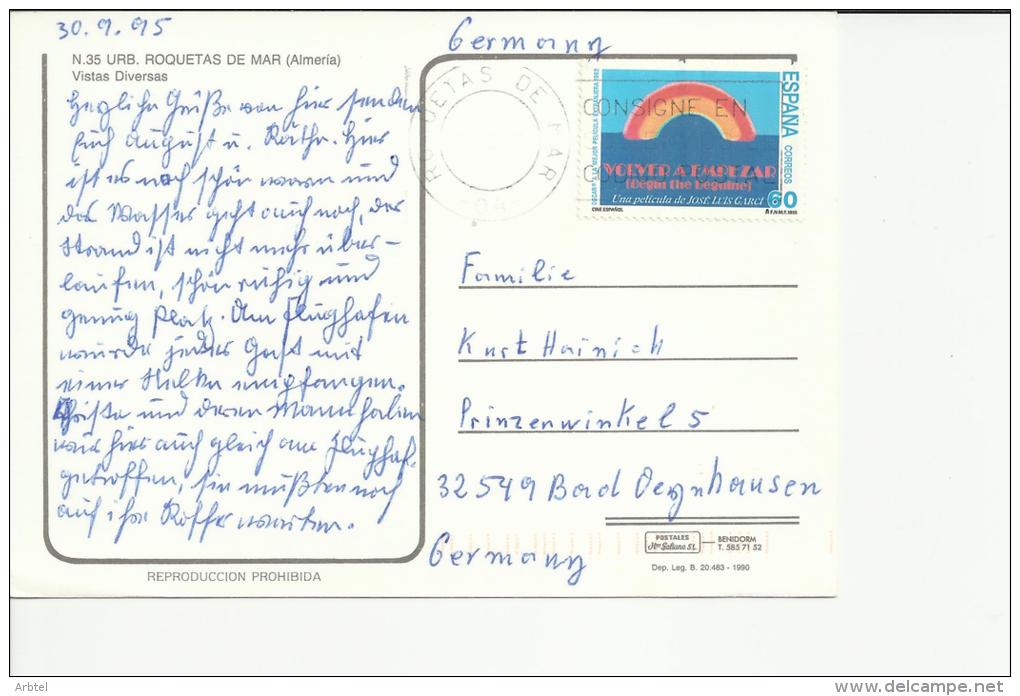 30.9.95
N.35 URB. ROQUETAS DE MAR (Almería)
Vistas Diversas
Herzliche Grüße von hier senden
Euch August u. Käthe. Hier
ist es noch schön warm und
das Wasser geht auch noch, der
Strand ist nicht mehr über-
laufen, schön ruhig und
genug Platz. Am Flughafen
wurde jeder Gast mit
einer Nelke empfangen.
Christa und deren Mann haben
wir hier auch gleich am Flughaf.
getroffen, sie mußten noch
auf ihre Koffer warten.
REPRODUCCION PROHIBIDA
Germany
ROQUETAS DE MAR
CONSIGNE EN
POSTAL
ESPAÑA
CORREOS
60
OSCAR A LA MEJOR PELICULA EXTRANJERA 1982
VOLVER A EMPEZAR
(Begin the Beguine)
Una película de JOSÉ LUIS GARCI
CINE ESPAÑOL
F.N.M.T. 1995
Familie
Kurt Hainich
Prinzenwinkel 5
32549 Bad Oeynhausen
Germany
POSTALES
Hnos Galiana S.L.
BENIDORM
T. 585 71 52
Dep. Leg. B. 20.483 - 1990
Arbtel
delcampe.net